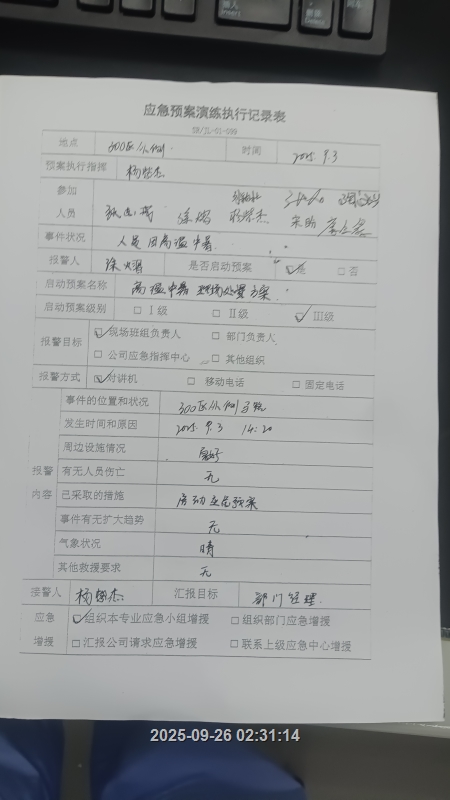 应急预案演练执行记录表
SH/JL-01-099
地点 300区 时间 2025. 9.3
预案执行指挥 杨荣杰
参加
人员 杨荣杰
事件状况 人员因高温中暑
报警人 是否启动预案 ☑是 □否
启动预案名称 高温中暑现场处置方案
启动预案级别 □Ⅰ级 □Ⅱ级 ☑Ⅲ级
报警目标 ☑现场班组负责人 □部门负责人
□公司应急指挥中心 □其他组织
报警方式 ☑对讲机 □移动电话 □固定电话
报警内容
事件的位置和状况 300区
发生时间和原因 2025. 9.3 14:20
周边设施情况 良好
有无人员伤亡 无
已采取的措施 启动应急预案
事件有无扩大趋势 无
气象状况 晴
其他救援要求 无
接警人 杨荣杰 汇报目标 部门经理
应急 ☑组织本专业应急小组增援 □组织部门应急增援
增援 □汇报公司请求应急增援 □联系上级应急中心增援
2025-09-26 02:31:14